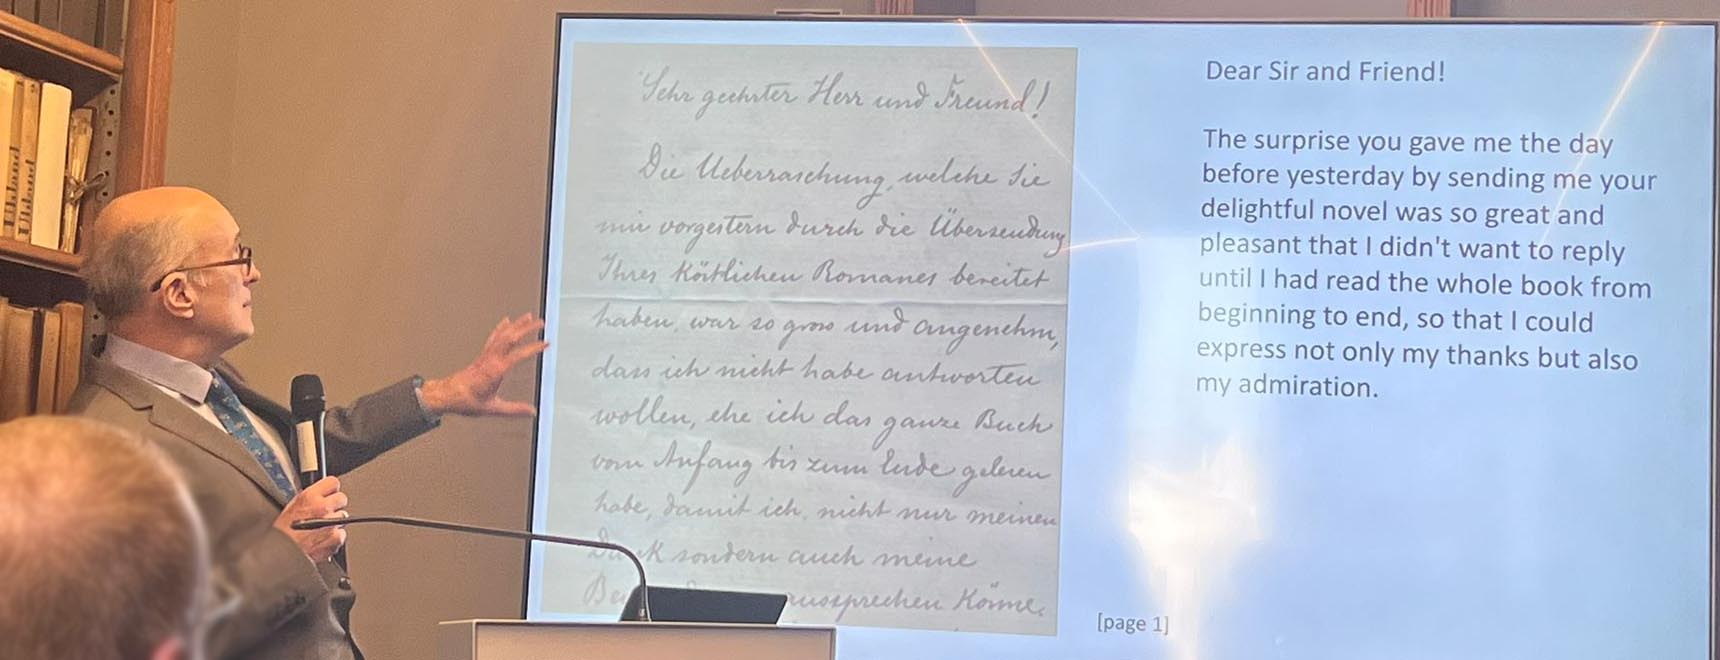 Uhland
Uhland
Sehr geehrter Herr und Freund!
Die Ueberraschung, welche Sie
mir vorgestern durch die Übersendung
Ihres köstlichen Romanes bereitet
haben, war so gross und angenehm,
dass ich nicht habe antworten
wollen, ehe ich das ganze Buch
vom Anfang bis zum Ende gelesen
habe, damit ich, nicht nur meinen
Dank sondern auch meine
aussprechen könne.
Dear Sir and Friend!
The surprise you gave me the day
before yesterday by sending me your
delightful novel was so great and
pleasant that I didn't want to reply
until I had read the whole book from
beginning to end, so that I could
express not only my thanks but also
my admiration.
[page 1]